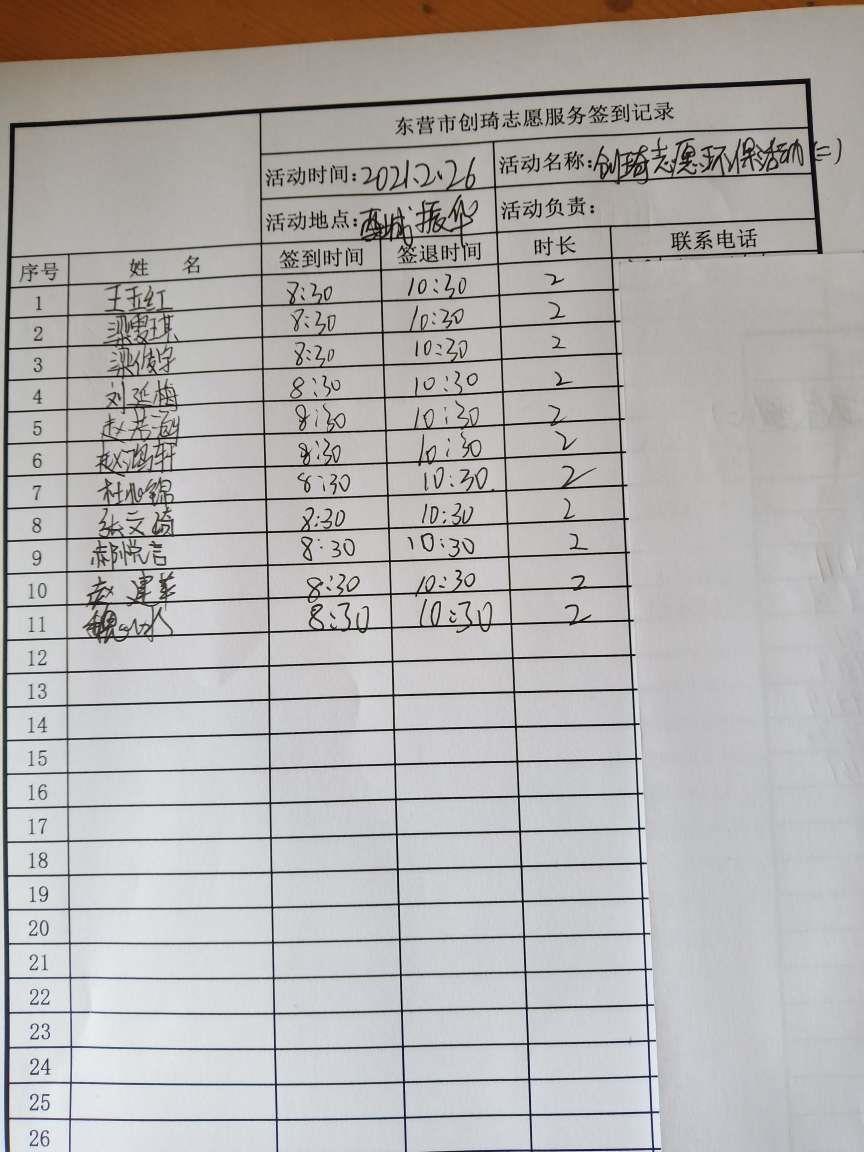 东营市创琦志愿服务签到记录
活动时间:2021.2.26 活动名称:创琦志愿环保活动(二)
活动地点:西城振华 活动负责:
序号 姓名 签到时间 签退时间 时长 联系电话
1 王玉红 8:30 10:30 2
2 梁雯琪 8:30 10:30 2
3 梁俊宇 8:30 10:30 2
4 刘延梅 8:30 10:30 2
5 赵若涵 8:30 10:30 2
6 赵鸿轩 8:30 10:30 2
7 杜心锦 8:30 10:30 2
8 张文琦 8:30 10:30 2
9 郝悦言 8:30 10:30 2
10 赵建华 8:30 10:30 2
11 魏 8:30 10:30 2
12
13
14
15
16
17
18
19
20
21
22
23
24
25
26